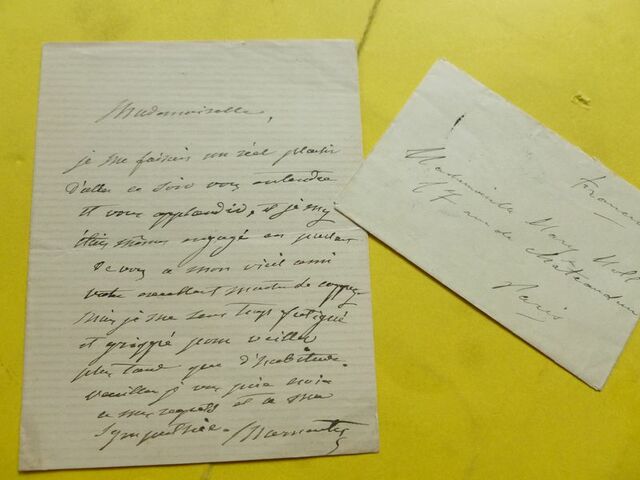 Mademoiselle,
je me faisais un réel plaisir
d'aller ce soir vous entendre
et vous applaudir, et je m'y
étais même engagé en parlant
de vous à mon vieil ami
votre excellent
mais je me sens trop fatigué
et grippé pour veiller
plus tard que d'habitude
veuillez je vous prie croire
à mes regrets et à ma
sympathie. Marmontel
Mademoiselle Mary
17 rue de Chateaudun
Paris